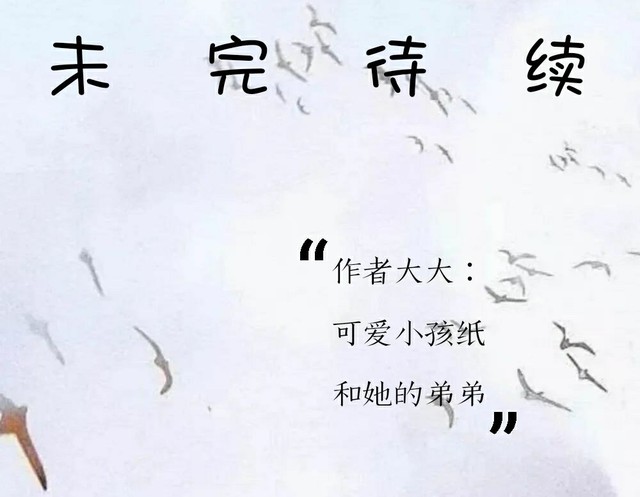 未完待续
“作者大大：
可爱小孩纸
和她的弟弟”